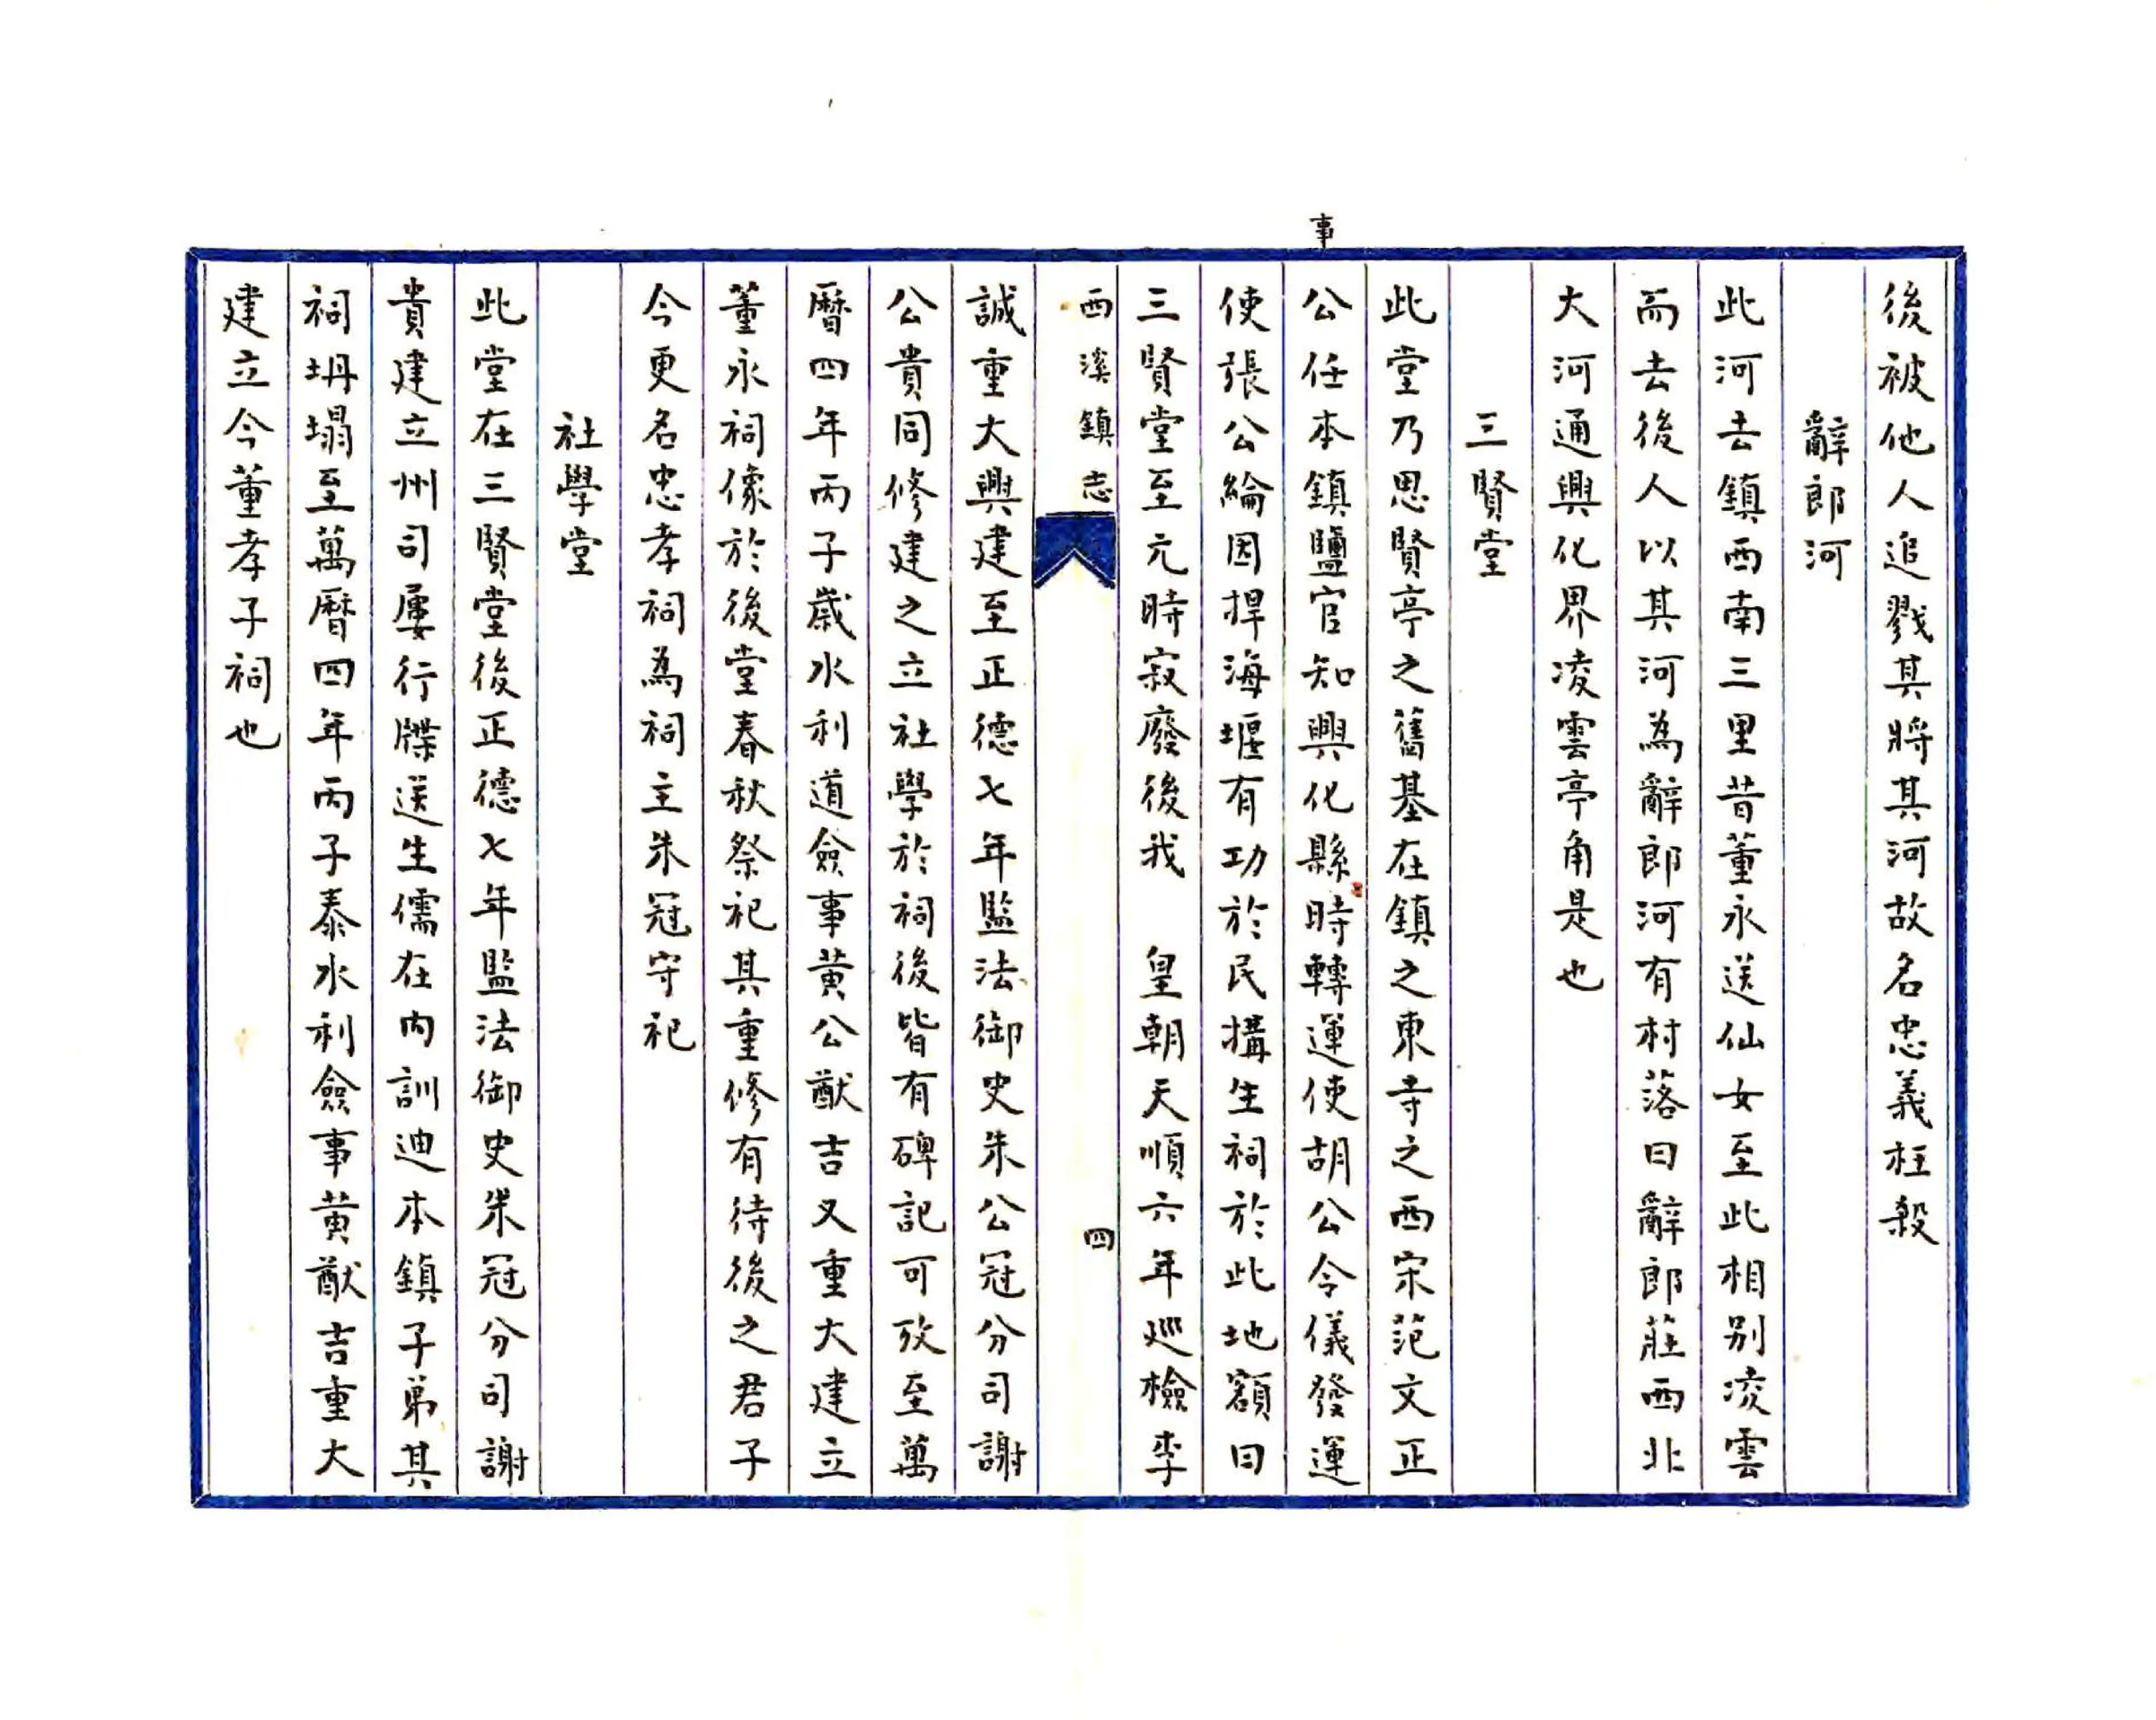 後被他人追戮其將其河故名忠義枉殺
辭郎河
此河去鎮西南三里昔董永送仙女至此相別凌雲
而去後人以其河為辭郎河有村落曰辭郎莊西北
大河通興化界凌雲亭角是也
三賢堂
此堂乃思賢亭之舊基在鎮之東寺之西宋范文正
事
公任本鎮鹽官知興化縣時轉運使胡公令儀發運
使張公綸因捍海堰有功於民搆生祠於此地額曰
三賢堂至元時寂廢後我 皇朝天順六年巡檢李
西溪鎮志
四
誠重大興建至正德七年監法御史朱公冠分司謝
公貴同修建之立社學於祠後皆有碑記可攷至萬
曆四年丙子歲水利道僉事黃公猷吉又重大建立
董永祠像於後堂春秋祭祀其重修有待後之君子
今更名忠孝祠為祠主朱冠守祀
社學堂
此堂在三賢堂後正德七年監法御史朱冠分司謝
貴建立州司屢行牒送生儒在內訓迪本鎮子弟其
祠坍塌至萬曆四年丙子泰水利僉事黃猷吉重大
建立今董孝子祠也